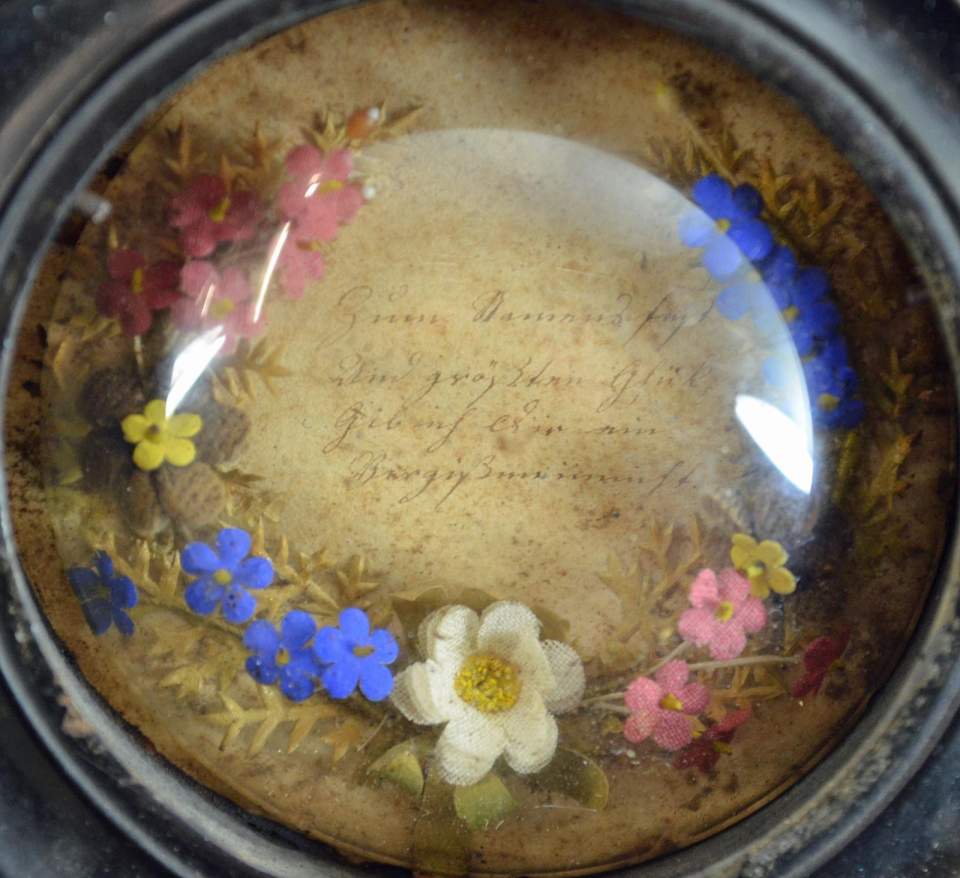 Zum Namensfest
Dein größten Glük
Gib ich Dir ein
Vergißmeinnicht